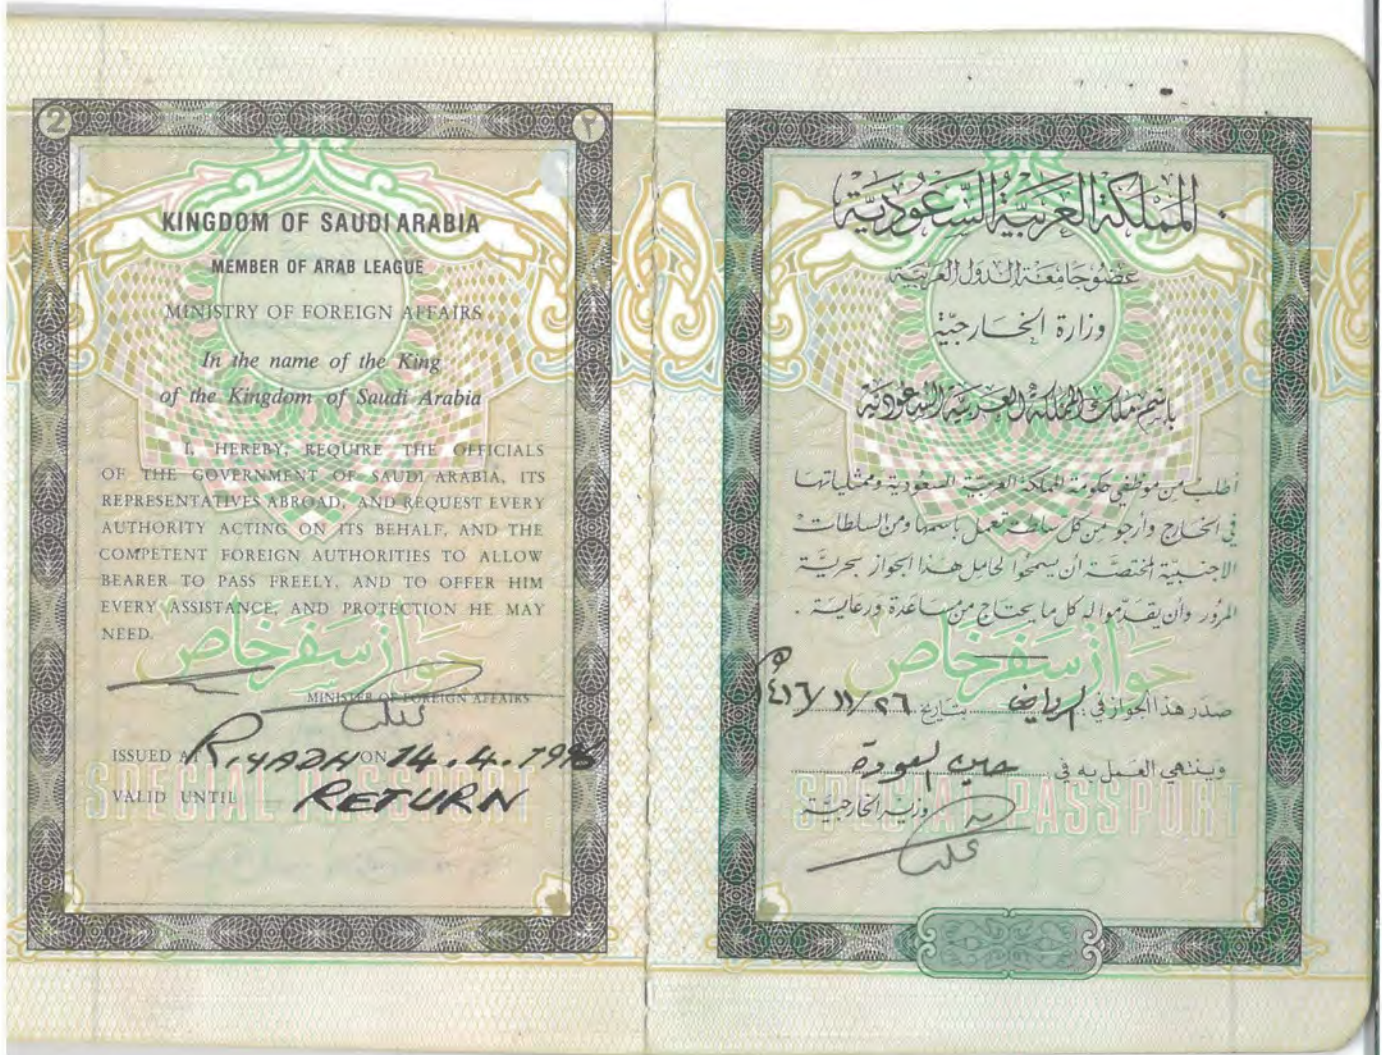 2
٢
KINGDOM OF SAUDI ARABIA
MEMBER OF ARAB LEAGUE
MINISTRY OF FOREIGN AFFAIRS
In the name of the King
of the Kingdom of Saudi Arabia
I, HEREBY, REQUIRE THE OFFICIALS
OF THE GOVERNMENT OF SAUDI ARABIA, ITS
REPRESENTATIVES ABROAD, AND REQUEST EVERY
AUTHORITY ACTING ON ITS BEHALF, AND THE
COMPETENT FOREIGN AUTHORITIES TO ALLOW
BEARER TO PASS FREELY, AND TO OFFER HIM
EVERY ASSISTANCE, AND PROTECTION HE MAY
NEED.
جواز سفر خاص
MINISTER OF FOREIGN AFFAIRS
ISSUED AT RIYADH ON 14.4.1996
SPECIAL PASSPORT
VALID UNTIL RETURN
المملكة العربية السعودية
عضو جامعة الدول العربية
وزارة الخارجية
باسم ملك المملكة العربية السعودية
أطلب من موظفي حكومة المملكة العربية السعودية وممثلياتها
في الخارج وأرجو من كل سلطة تعمل باسمها ومن السلطات
الاجنبية المختصة أن يسمحوا لحامل هذا الجواز بحرية
المرور وأن يقدموا له كل ما يحتاج من مساعدة ورعاية .
جواز سفر خاص
صدر هذا الجواز في : الرياض بتاريخ ٢٦/١١/٤١٦ھ
وينتهي العمل به في حين العودة
SPECIAL PASSPORT
وزير الخارجية